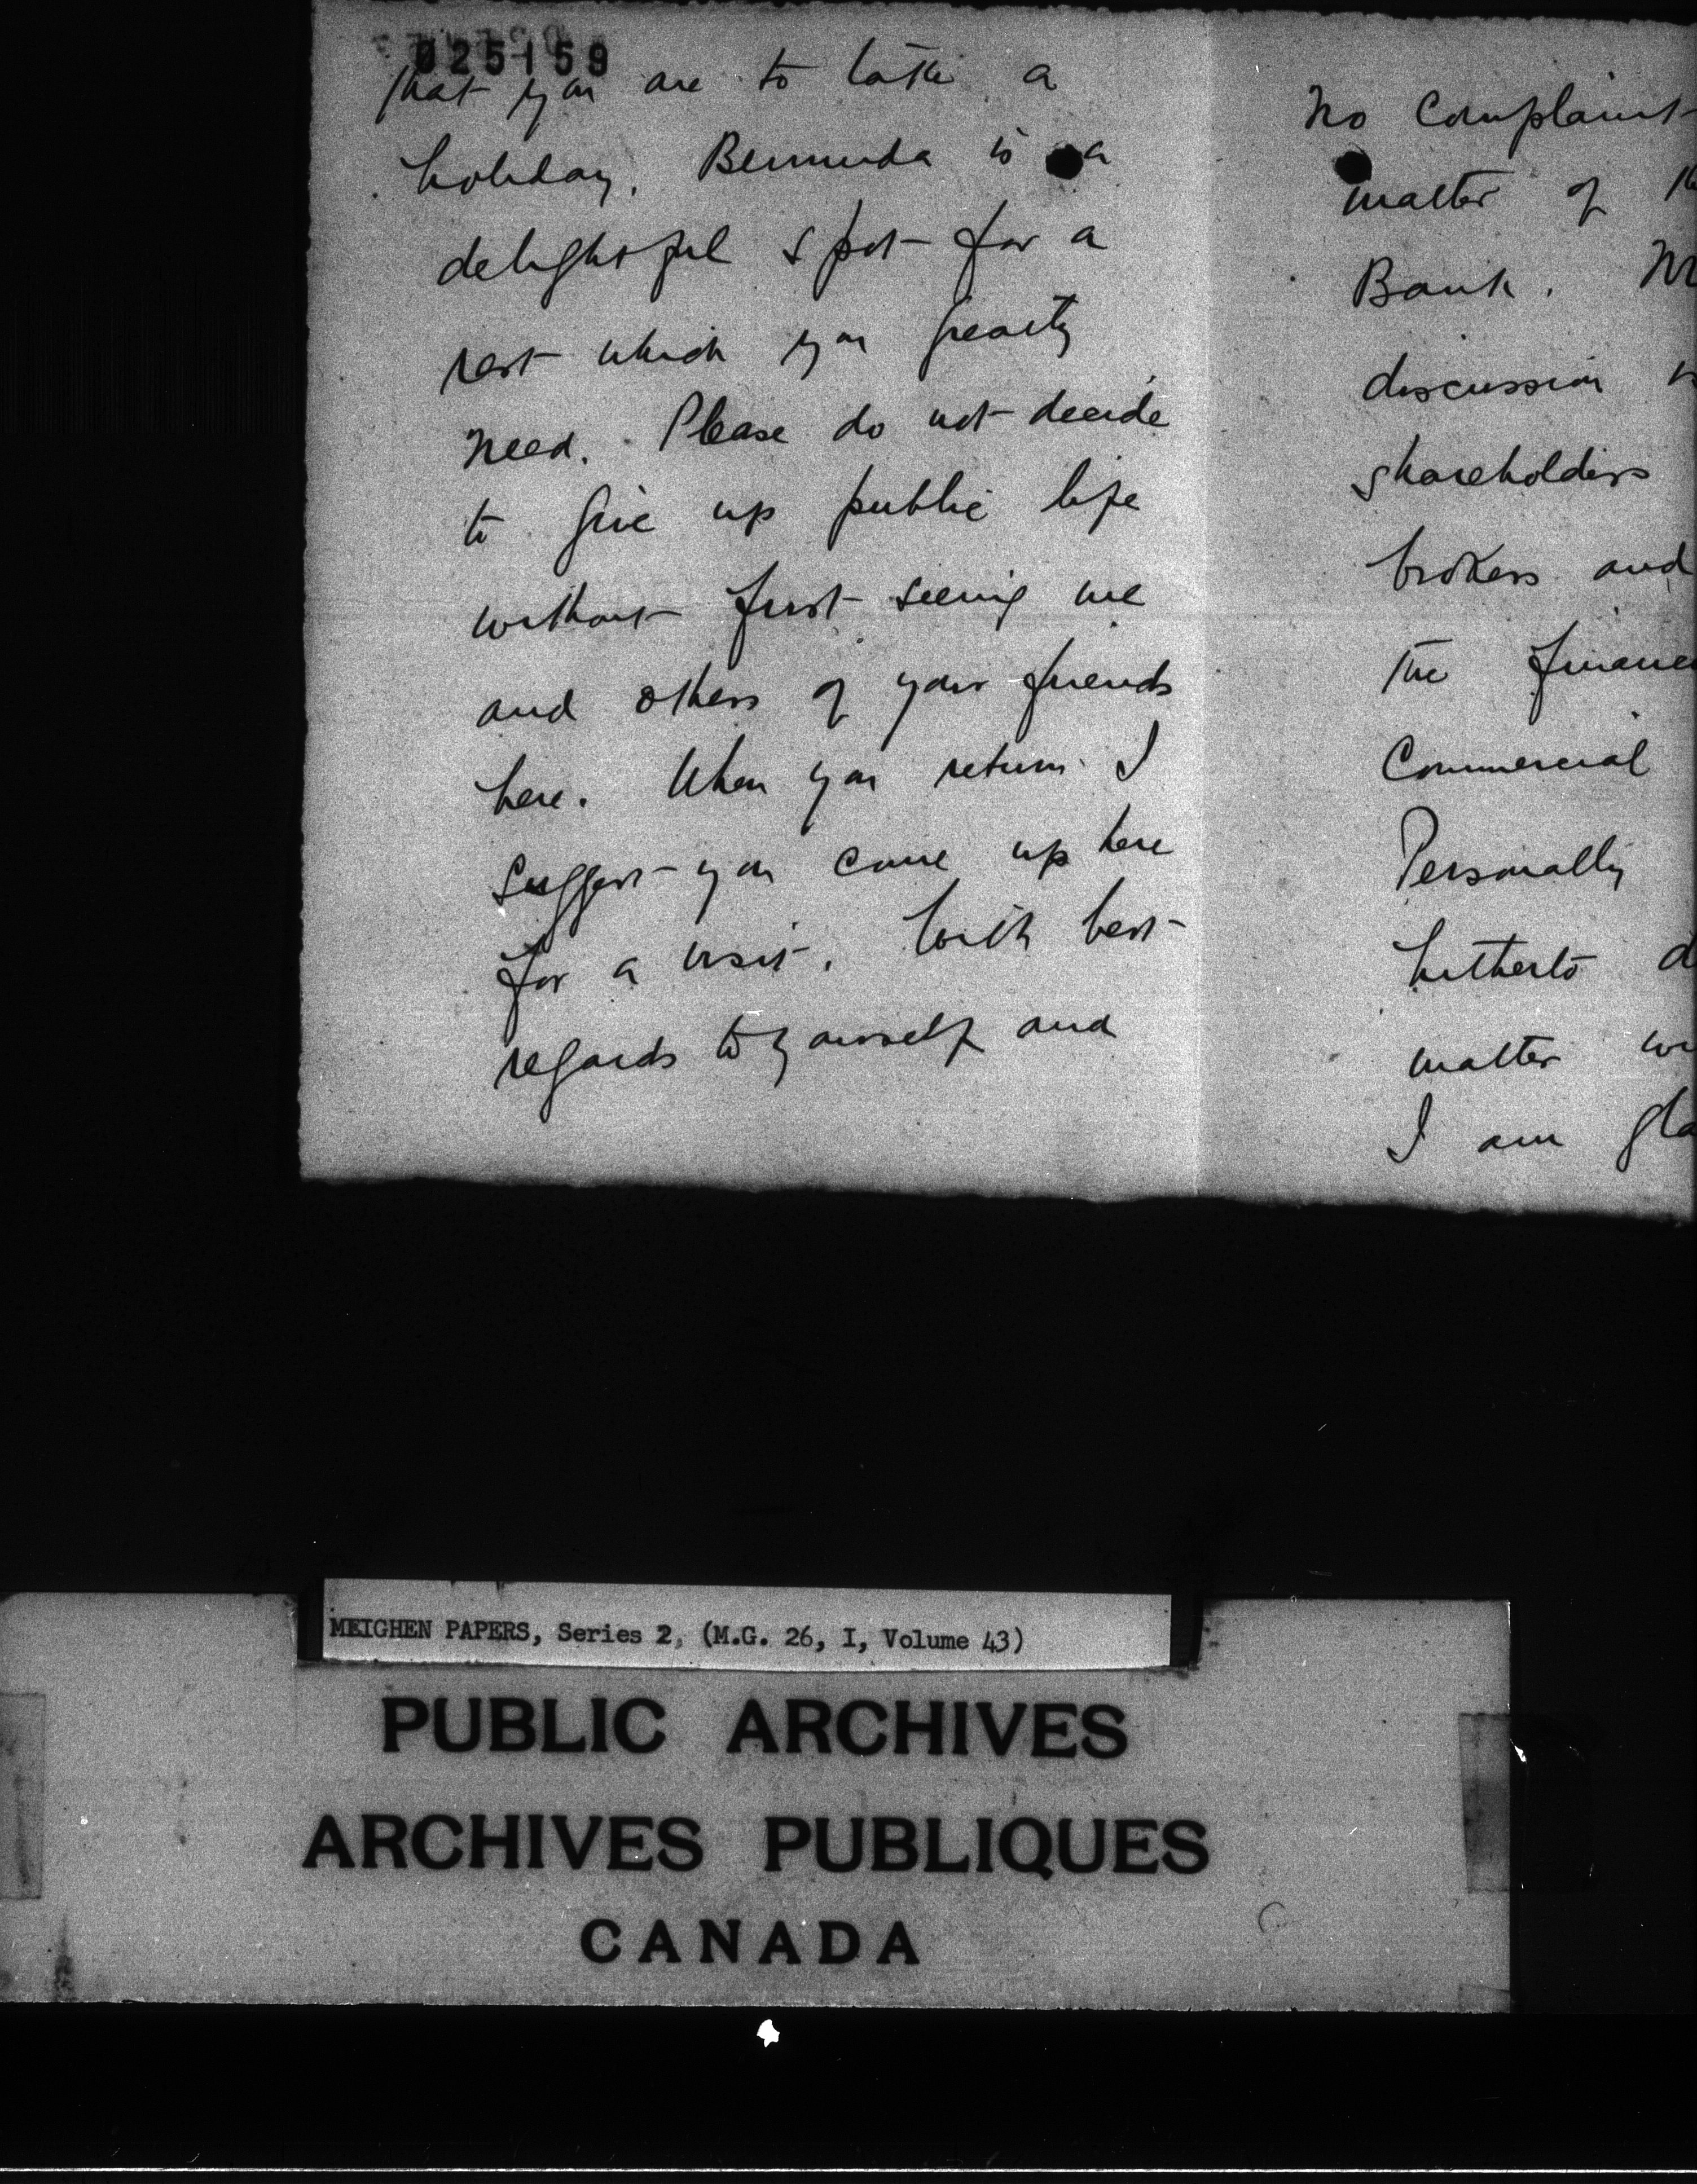 025159
that you are to take a
holiday. Bermuda is a
delightful spot for a
rest which you greatly
need. Please do not decide
to give up public life
without first seeing me
and others of your friends
here. When you return I
suggest you come up here
for a visit. With best
regards to yourself and
no complaint
matter of
Bank.
discussion
shareholders
brokers and
the
Commercial
Personally
hitherto
matter
I am
MEIGHEN PAPERS, Series 2, (M.G. 26, I, Volume 43)
PUBLIC ARCHIVES
ARCHIVES PUBLIQUES
CANADA